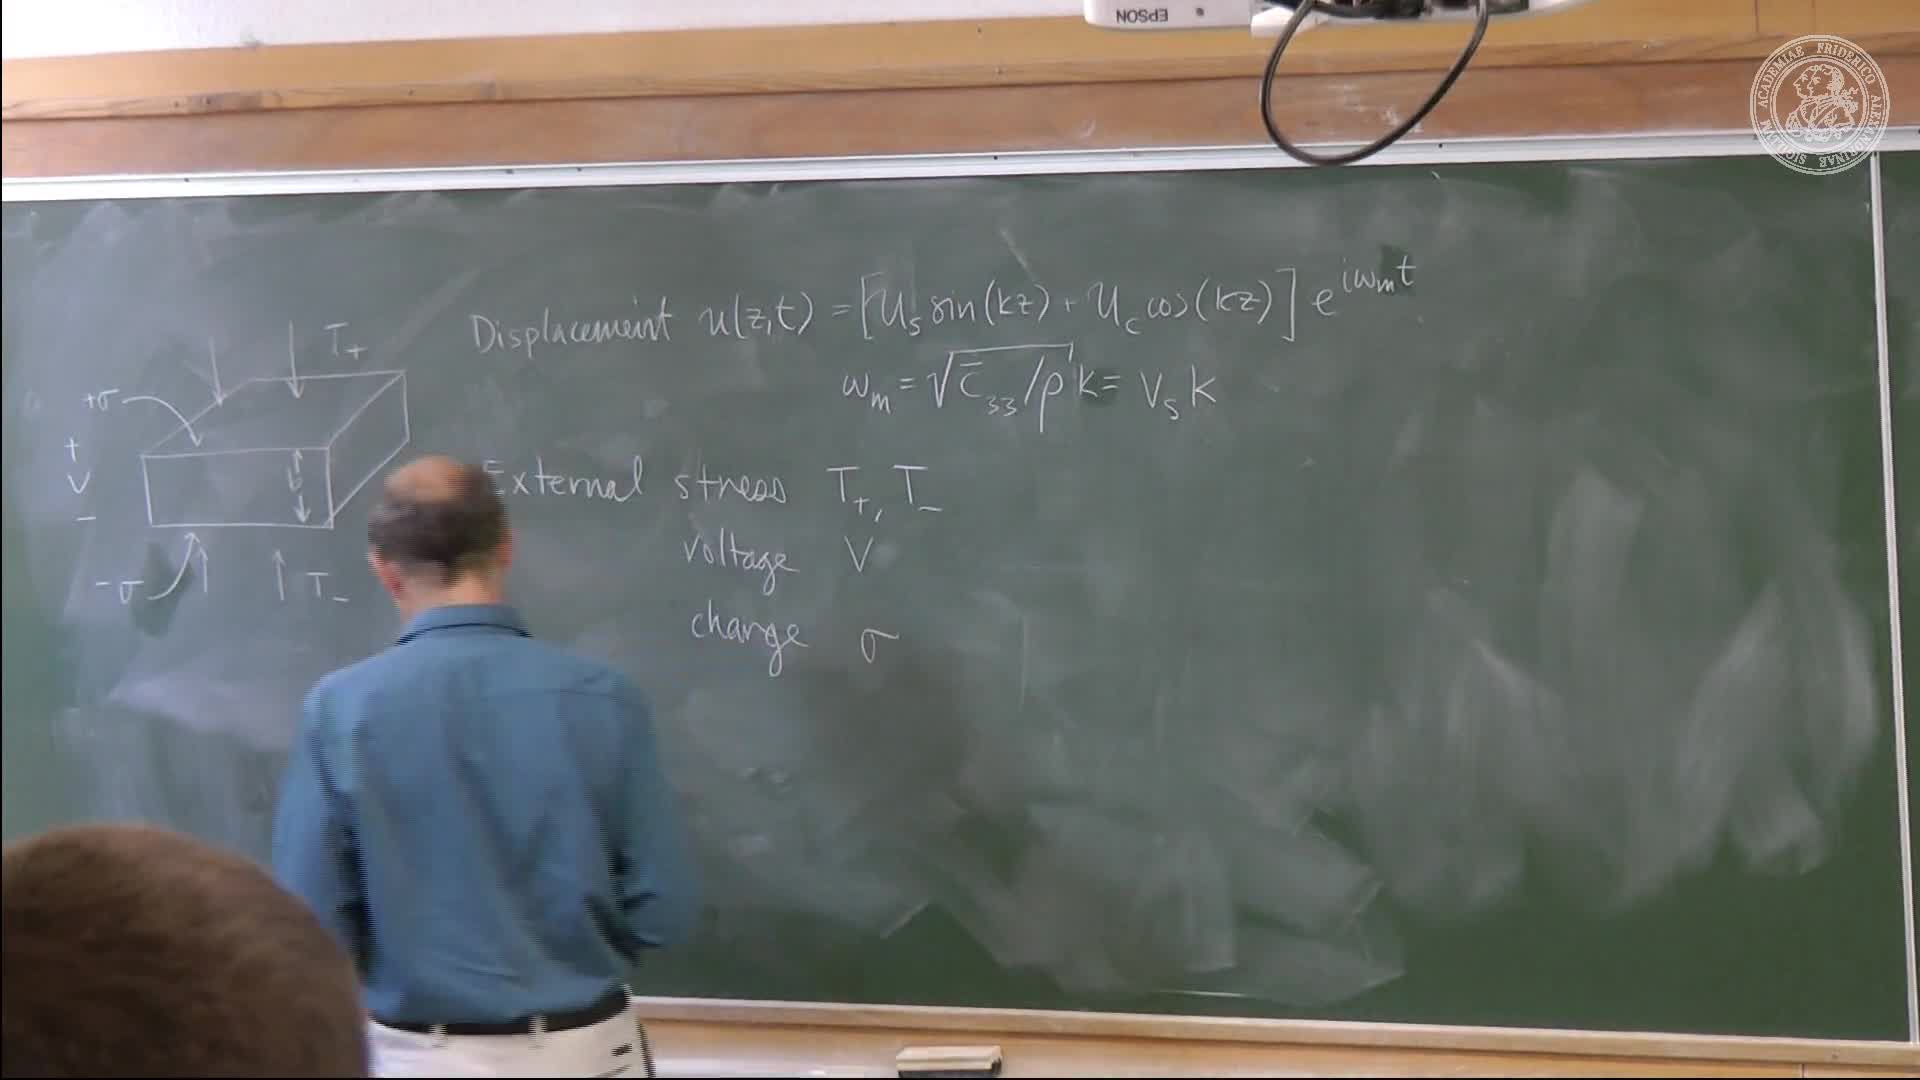 EPSON
ACADEMIAE FRIDERICO ALEXANDRINAE SIGILLUM
Displacement u(z,t) = [u_s sin(kz) + u_c cos(kz)] e^{iω_m t}
ω_m = √(c̄_33/ρ) k = v_s k
External stress T_+, T_-
voltage V
charge σ
T_+
+σ
+
V
-
t
-σ
T_-